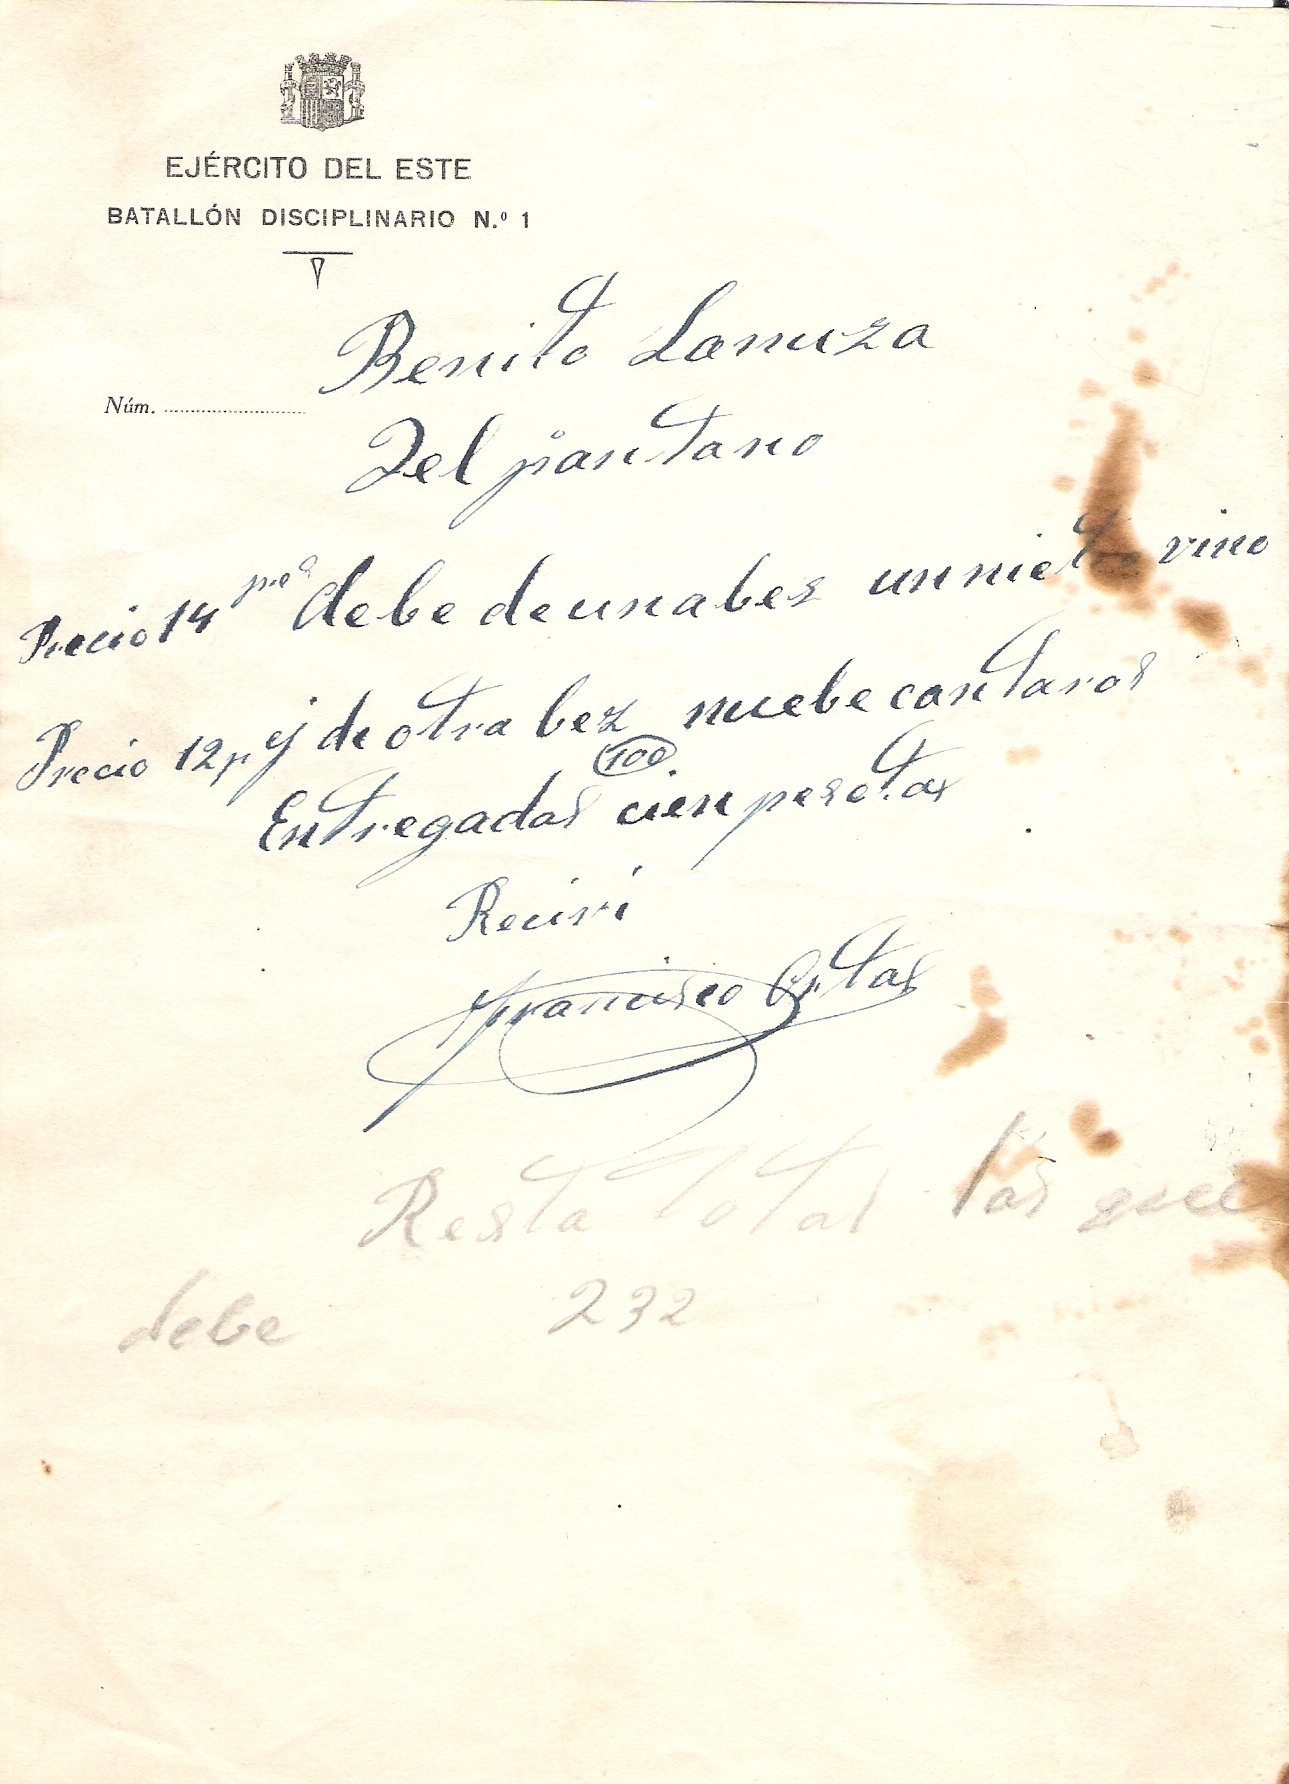 EJÉRCITO DEL ESTE
BATALLÓN DISCIPLINARIO N.º 1
Benito Lanuza
Núm.
Del pantano
Precio 14 ptas debe de una bes un nietro vino
Precio 12 p y de otra bez nuebe cantaros
100
Entregadas cien pesetas
Recivi
Francisco Ortas
Resta total las que
debe 232